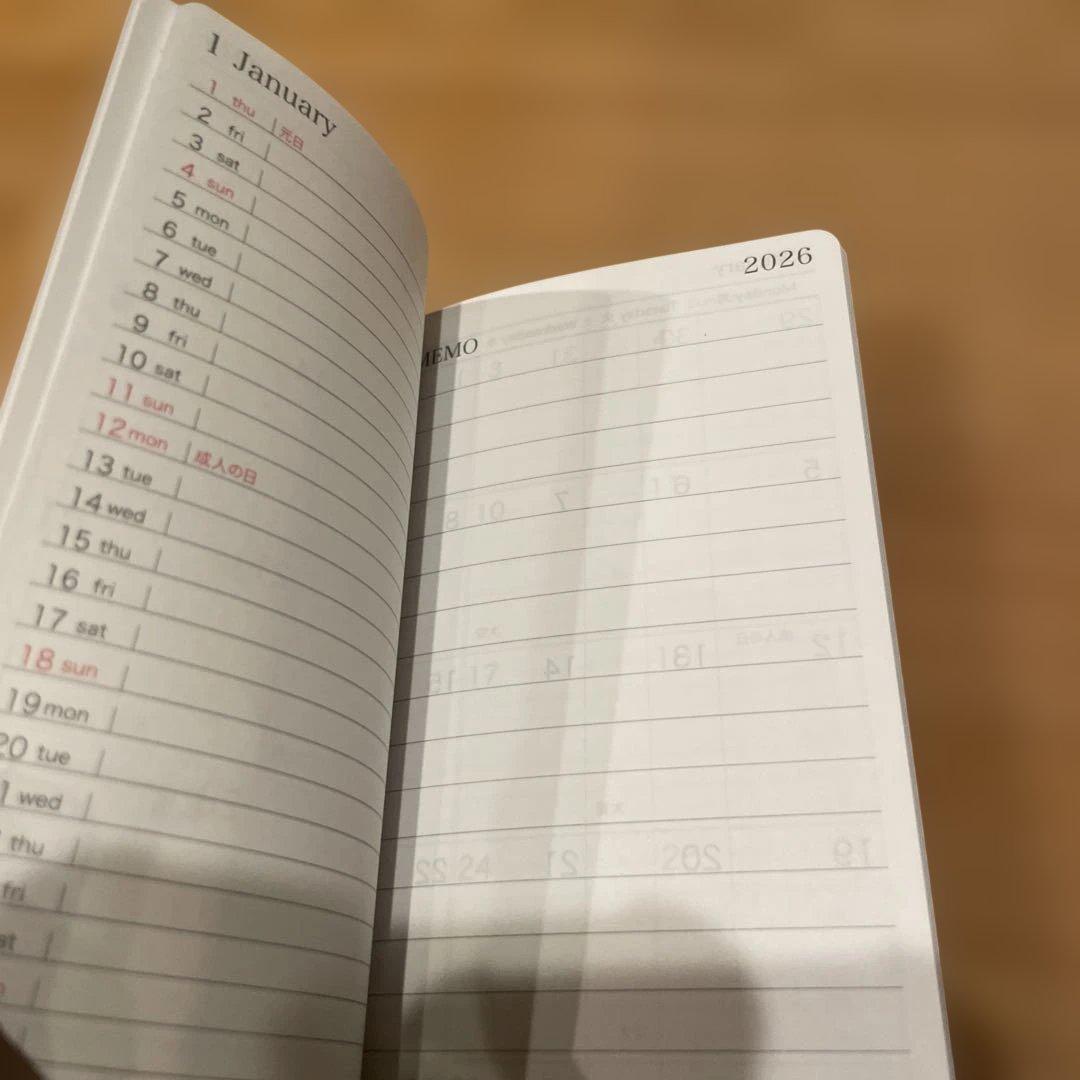 1 January
1 thu 元日
2 fri
3 sat
4 sun
5 mon
6 tue
7 wed
8 thu
9 fri
10 sat
11 sun
12 mon 成人の日
13 tue
14 wed
15 thu
16 fri
17 sat
18 sun
19 mon
20 tue
1 wed
thu
fri
2026
MEMO